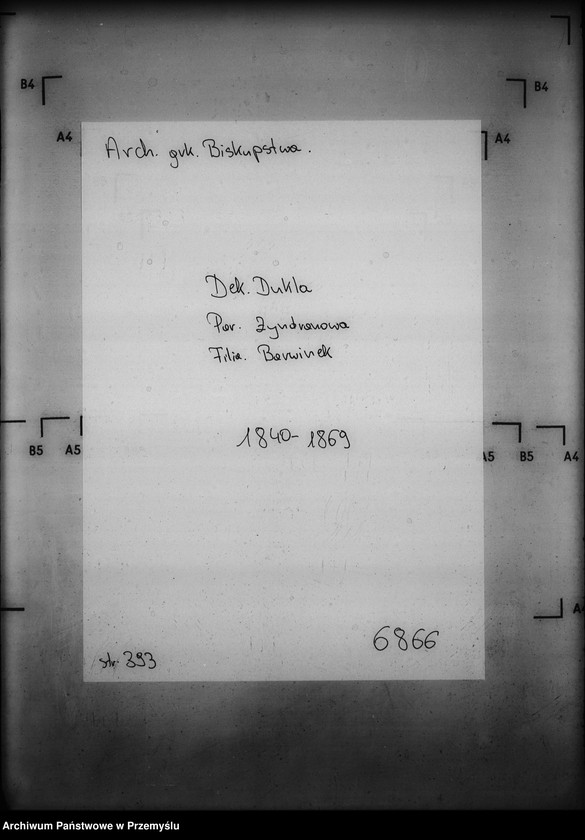 B4
B4
A4
A4
Arch. gr.k. Biskupstwa.
Dek. Dukla
Par. Zyndranowa
Filia. Barwinek
1840-1869
B5
A5
A5
B5
A4
A
6866
str. 393
Archiwum Państwowe w Przemyślu